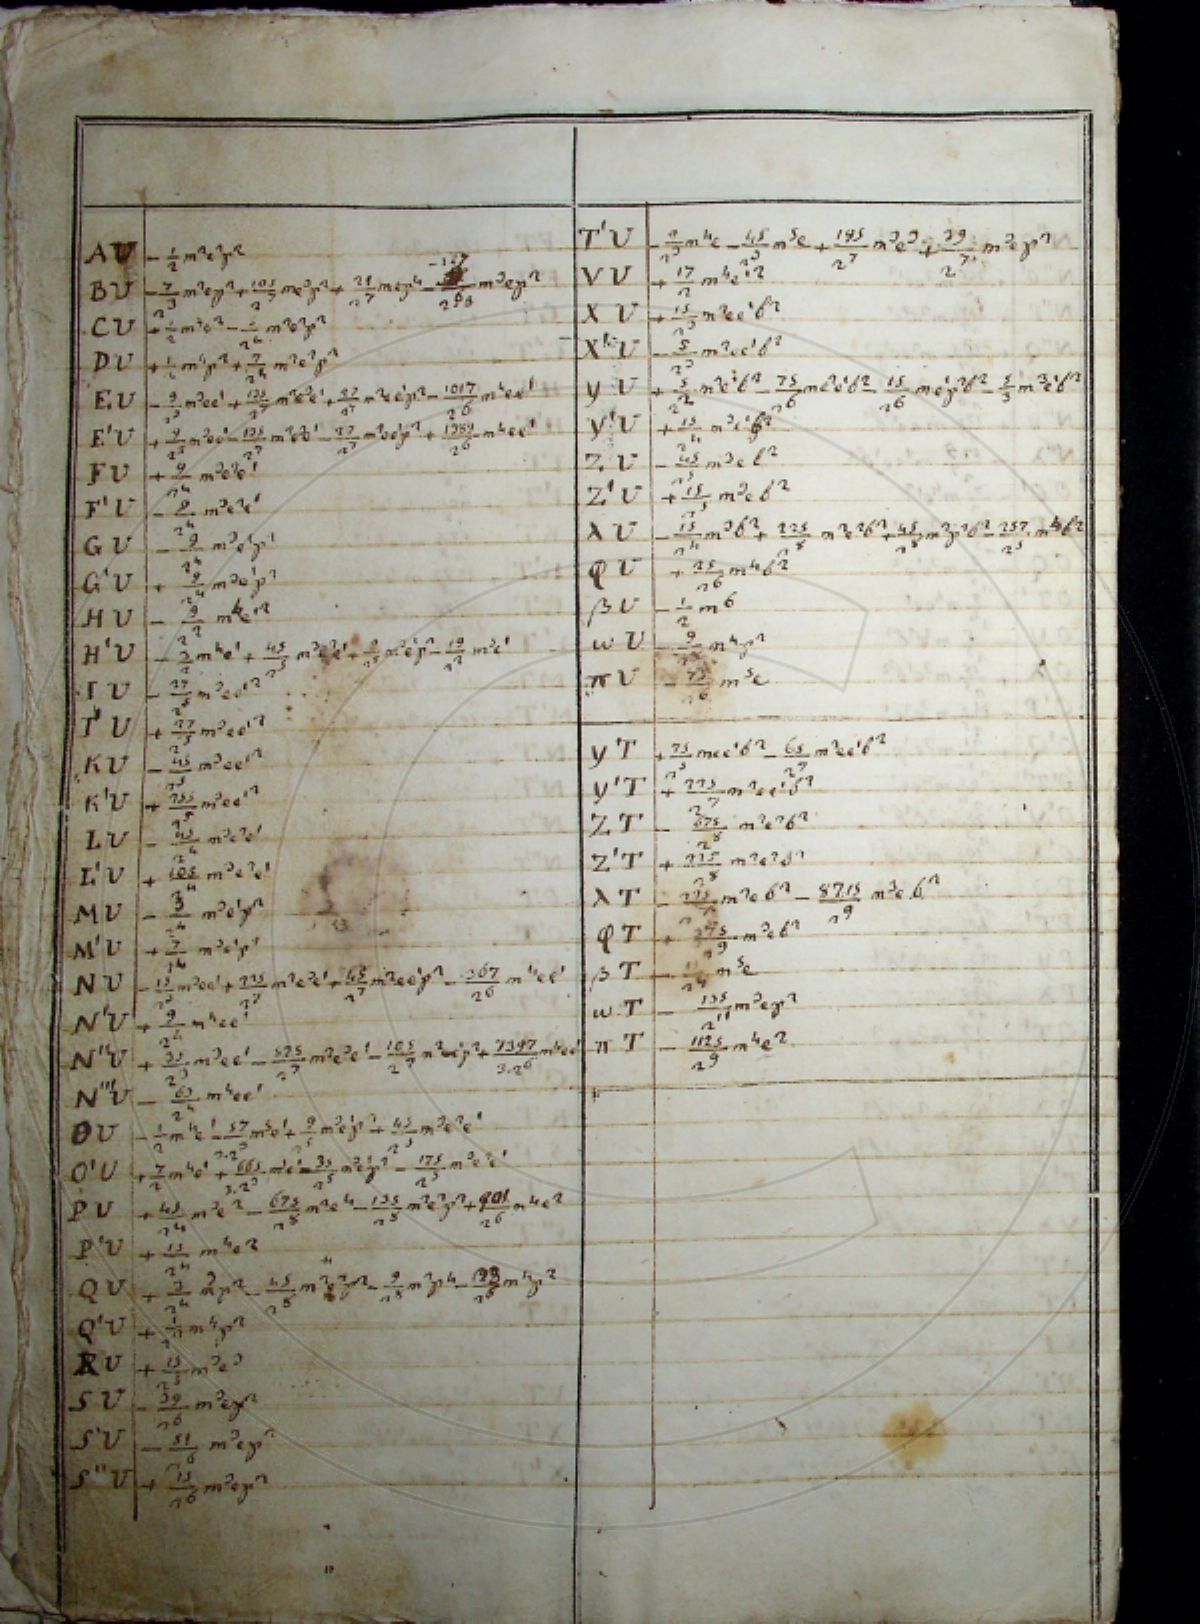 AU − 1/2 m²e²γ²
BU − 7/2³ m²eγ² + 105/2⁷ me³γ² + 21/2⁷ meγ⁴ − m³eγ²
CU + 1/2 m²e² − 1/2⁴ m²e²γ²
DU + 1/2 m⁴γ² + 7/2⁴ m²e²γ²
EU − 9/2³ m³ee' + 135/2⁷ m²e³e' + 27/2⁷ m²ee'γ² − 1017/2⁶ m⁴ee'
E'U + 9/2³ m³ee' − 135/2⁷ m²e³e' − 27/2⁷ m²ee'γ² + 1389/2⁶ m⁴ee'
FU + 9/2⁴ m³e²e'
F'U − 9/2⁴ m³e²e'
GU − 9/2⁴ m³e'γ²
G'U + 9/2⁴ m³e'γ²
HU − 9/2² m⁴e'²
H'U m⁴e' + 45/2⁵ m³e²e' + 9/2⁵ m³e'γ² − 19/2² m⁵e'
IU − 27/2⁵ m³ee'²
I'U + 27/2⁵ m³ee'²
KU − 45/2⁵ m³ee'²
K'U + 255/2⁵ m³ee'²
LU − 45/2⁴ m³e²e'
L'U + 105/2⁴ m³e²e'
MU − 3/2⁴ m³e'γ²
M'U + 7/2⁴ m³e'γ²
NU − 15/2³ m³ee' + 225/2⁷ m²e³e' + 45/2⁷ m²ee'γ² − 367/2⁶ m⁴ee'
N'U + 9/2⁴ m⁴ee'
N''U + 35/2³ m³ee' − 525/2⁷ m²e³e' − 105/2⁷ m²ee'γ² + 7397/3.2⁶ m⁴ee'
N'''U − 63/2⁴ m⁴ee'
OU − 1/2 m⁴e' − 57/2.2³ m⁵e' + 9/2⁵ m³e'γ² + 45/2⁵ m³e²e'
O'U + 7/2 m⁴e' + 665/3.2³ m⁵e' − 35/2⁵ m³e'γ² − 175/2⁵ m³e²e'
PU + 45/2⁴ m³e² − 675/2⁸ m²e⁴ − 135/2⁸ m²e²γ² + 901/2⁶ m⁴e²
P'U + 15/2⁴ m⁴e²
QU + 3/2⁴ m³γ² − 45/2⁸ m²e²γ² − 9/2⁸ m²γ⁴ − m⁴γ²
Q'U + m⁴γ²
RU + 15/2⁵ m³e³
SU − 39/2⁶ m³eγ²
S'U − 51/2⁶ m³eγ²
S''U + 15/2⁶ m³eγ²
T'U − 9/2³ m⁴e − 45/2³ m⁵e + 195/2⁷ m³e³ + 39/2⁷ m³eγ²
VU + 17/2 m⁴e'²
XU + 15/2³ m²ee'b²
X''U − 5/2³ m²ee'b²
yU + 5/2² m²e'b² − 75/2⁶ me²e'b² − 15/2⁶ me'γ²b² − 5/3 m³e'b²
y'U + 15/2⁴ m³e'b²
ZU − 45/2⁵ m³eb²
Z'U + 15/2⁵ m³eb²
λU − 15/2⁴ m³b² + 225/2⁸ m²e²b² + 45/2⁸ m²γ²b² − 257/2⁵ m⁴b²
φU + 25/2⁶ m⁴b²
βU − 1/2 m⁶
ωU m⁴γ²
πU − 75/2⁶ m⁵e
y'T + 75/2⁵ mee'b² − 65/2⁷ m²ee'b²
y'T + 225/2⁷ m²ee'b²
ZT − 675/2⁸ m²e²b²
Z'T + 225/2⁸ m²e²b²
λT m²eb² − 8715/2⁹ m³eb²
φT + 375/2⁹ m³eb²
βT m⁵e
ωT − 135/2¹¹ m³eγ²
πT − 1125/2⁹ m⁴e²